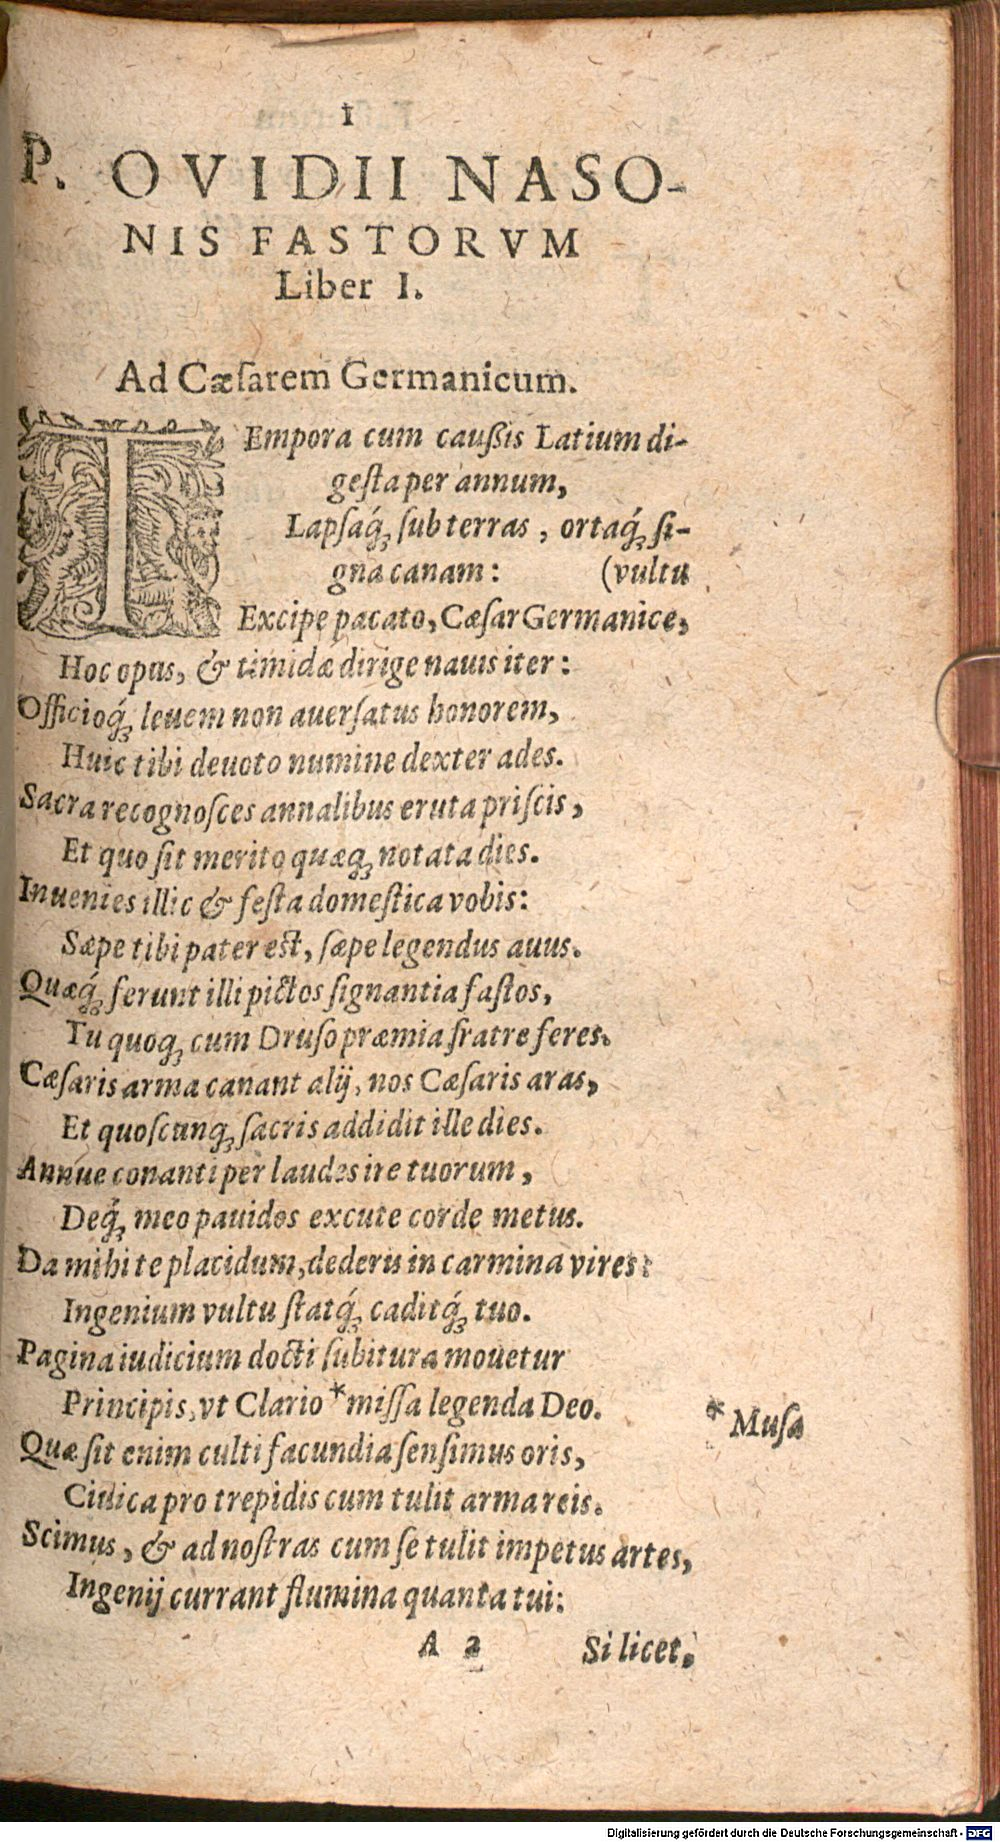 1
P. OVIDII NASO-
NIS FASTORVM
Liber I.
Ad Cæſarem Germanicum.
TEmpora cum caußis Latium di-
geſta per annum,
Lapſaq́ꝫ ſub terras, ortaq́ꝫ ſi-
gna canam: (vultu
Excipe pacato, Cæſar Germanice,
Hoc opus, & timidæ dirige nauis iter:
Officioq́ꝫ leuem non auerſatus honorem,
Huic tibi deuoto numine dexter ades.
Sacra recognoſces annalibus eruta priſcis,
Et quo ſit merito quæqꝫ notata dies.
Inuenies illic & feſta domeſtica vobis:
Sæpe tibi pater eſt, ſæpe legendus auus.
Quæq́ꝫ ferunt illi pictos ſignantia faſtos,
Tu quoqꝫ cum Druſo præmia fratre feres.
Cæſaris arma canant alij, nos Cæſaris aras,
Et quoſcunqꝫ ſacris addidit ille dies.
Annue conanti per laudes ire tuorum,
Deq́ꝫ meo pauidos excute corde metus.
Da mihi te placidum, dederis in carmina vires:
Ingenium vultu ſtatq́ꝫ caditq́ꝫ tuo.
Pagina iudicium docti ſubitura mouetur
Principis, vt Clario *miſſa legenda Deo.
* Muſa
Quæ ſit enim culti facundia ſenſimus oris,
Ciuica pro trepidis cum tulit arma reis.
Scimus, & ad noſtras cum ſe tulit impetus artes,
Ingenij currant flumina quanta tui:
A 2 Si licet,
Digitalisierung gefördert durch die Deutsche Forschungsgemeinschaft - DFG